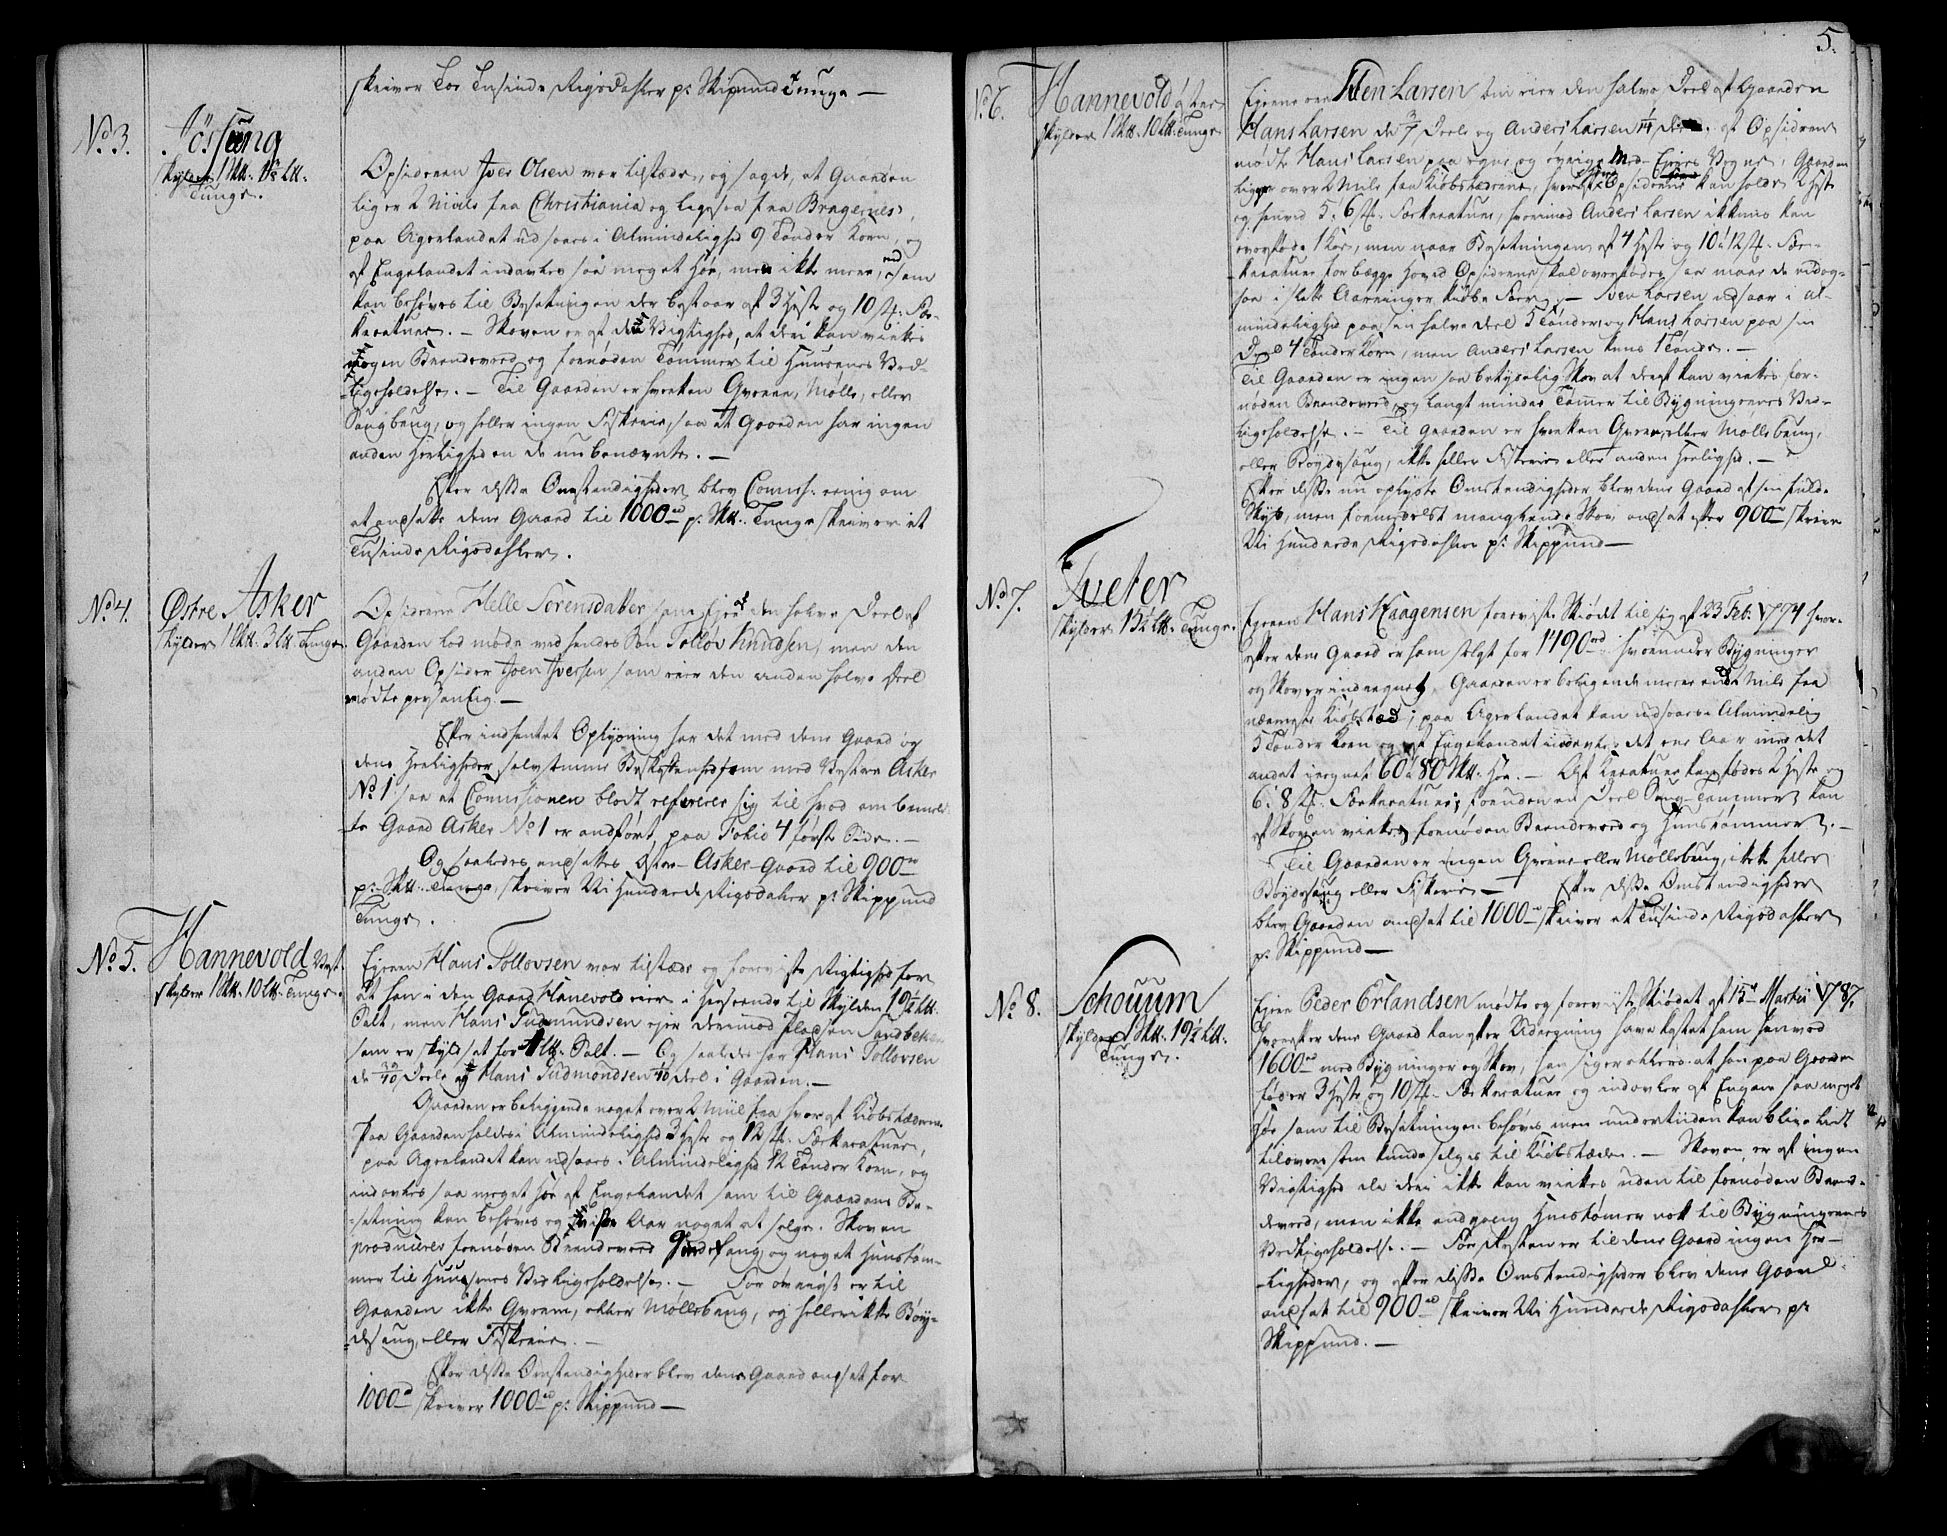 skriver Toe Tusinde Rigsdahler pr. Skipund Tunge —
No. 3.
Jössung
skylder 1 Sk℔. 12 L℔.
Tunge.
Opsidderen Iver Olsen var tilstæde, og sagde, at Gaarden
ligger 2 Miile fra Christiania og ligesaa fra Bragernes,
paa Agerlandet udsaaes i Almindelighed 9 Tønder Korn, og
af Engelandet indavles saa meget Høe, men ikke mere, end som
kan behøves til Besetningen der bestaar af 3 Heste og 10 st. Fæ-
kreature. — Skoven er af den Vigtighed, at deri kan virkes
nogen Brændeved og fornøden Tømmer til Huusenes Ved-
ligeholdelse. — Til Gaarden er hverken Qværn, Mølle, eller
Saugbrug, og heller ingen Fiskerie, saa at Gaarden har ingen
anden Herlighed en de nu benævnte. —
Efter disse Omstændigheder blev Commiss: eenig om
at ansætte denne Gaard til 1000 rd pr. Sk℔. Tunge skriver et
Tusinde Rigsdahler.
No. 4.
Østre Asker
skylder 1 Sk℔. 3 L℔ Tunge.
Opsidderne Helle Sørensdatter som Ejer af den halve Deel af
Gaarden lod møde ved hendes Søn Tolløv Knudsen, men den
anden Opsidder Joen Iversen som eier den anden halve Deel
mødte personlig. —
Efter indhentet Oplysning har det med denne Gaard og
dens Herligheder selvsamme Beskaffenhed som med Vestre Asker
No. 1 saa at Comissionen blodt refererer sig til hvad om bemeld-
te Gaard Asker No 1 er andført, paa Folio 4 første Side. —
Og saaledes ansættes Østre-Asker-Gaard til 900 rd
pr. Sk℔. Tunge, skriver Ni Hundrede Rigsdaler pr. Skippund
Tunge.
No. 5.
Hannevold Vest.
skylder 1 Sk℔. 10 L℔. Tunge.
Ejeren Hans Tollovsen var tilstæde og foreviste Rigtighed for
at han i den Gaard Hanevold eier i Henseende til Skylden 19½ L℔.
Salt, men Hans Gudmundsen ejer derimod Pladsen Sandbeken
som er skyldsat for ½ L℔. Salt. — Og saaledes har Hans Tollovsen
de 39/40 Deele og Hans Gudmondsen 1/40 Deel i Gaarden. —
Gaarden er beliggende noget over 2 Miil fra hver af Kiøbstæderne.
Paa Gaarden holdes i Almindelighed 3 Heste og 12 st. Fækreature,
paa Agerlandet kan udsaaes i Almindelighed 12 Tønder Korn, og
indavles saa meget Høe af Engelandet som til Gaardens Be-
-setning kan behøves og visse Aar noget at selge. Skoven
producerer fornøden Brændeved Gierdefang og noget Huustøm-
mer til Huusenes Vedligeholdelse. — For øvrigt er til
Gaarden ikke Qværn, eller Møllebrug, og heller ikke Bøig-
desaug, eller Fiskerie. —
Efter disse Omstændigheder blev denne Gaard ansat for
1000 rd skriver 1000 rd pr. Skippund —
5.
No. 6.
Hannevold østre
skylder 1 Sk℔. 10 L℔. Tunge
Ejerne ere Sven Larsen som eier den halve Deel af Gaarden
Hans Larsen de 3/7 Deele og Anders Larsen 1/14 Deel. af Opsidderne
mødte Hans Larsen paa egne og øvrige Med-Ejeres Vegne, Gaarden
ligger over 2 Mile fra Kiøbstæderne, hver af Opsidderne kan holde 2 Heste
og henved 5 á 6 st. Fækreature, hvorimod Anders Larsen ikkuns kan
overføde 1 Koe, men naar Besetningen af 4 Heste og 10 á 12 st. Fæ-
kreature for begge Hoved Opsiddere skal overfødes, saa maae de endog-
saa i slette Aaringer kiøbe Foer. — Sven Larsen udsaar i al-
mindelighed paa sin halve Deel 5 Tønder, og Hans Larsen paa sin
Deel 4 Tønder Korn, men Anders Larsen kuns 1 Tønde. —
Til Gaarden er ingen saa betydelig Skov at deraf kan virkes for-
nøden Brændeved, og langt mindre Tømer til Bygningernes Ved-
ligeholdelse. — Til Gaarden er hverken Qværn, eller Møllebrug,
eller Bøygdesaug, ikke heller Fiskerie eller anden Herlighed. —
Efter disse nu oplyste Omstændigheder blev denne Gaard af sin fulde
Skyld, men formedelst manglende Skov ansat efter 900 rd skriver
Ni Hundrede Rigsdahler pr. Skippund —
No. 7.
Tveter
skylder 13½ L℔. Tunge.
Ejeren Hans Haagensen foreviste Skiødet til sig af 23 Feb. 1774 hvor-
efter denne Gaard er ham solgt for 1190 rd: hvorunder Bygninger
og Skov er indregnet. Gaarden er beliggende mere end 2 Mile fra
nærmeste Kiøbstæd; paa Agerlandet kan udsaaes i Almindelig
5 Tønder Korn og af Engelandet indavles det ene Aar med det
andet iregnet 60 á 80 Sk℔. Høe. — Af Kreature kan fødes 2 Heste og
6 á 8 st. Fækreature; foruden en Deel Saug-Tømmer, kan
af Skoven virkes fornøden Brændeved og Huustømmer. —
Til Gaarden er ingen Qværn eller Møllebrug, ikke heller
Bøydesaug eller Fiskerie — Efter disse Omstændigheder
blev Gaarden ansat til 1000 rd skriver et Tusinde Rigsdahler
pr. Skippund —
No. 8.
Schouum
skylder 1 Sk℔. 19½ L℔.
Tunge.
Ejeren Peder Erlandsen mødte og foreviste Skiødet af 15de Martii 1787,
hvorefter denne Gaard kan efter Udregning have kostet ham henved
1600 rd med Bygninger og Skov, han siger ellers at han paa Gaarden
føder 3 Heste og 10 st. Fækreature og indavler af Engene saa meget
Høe som til Besetningen behøves men undertiden kan blive lidt
tilovers som kunde selges til Kiøbstæden. — Skoven er af ingen
Vigtighed da deri ikke kan virkes uden til fornøden Brænd-
deved, men ikke endgang Huustømer nok til Bygningernes
Vedligeholdelse. — For Resten er til denne Gaard ingen Her-
-ligheder, og efter disse Omstændigheder blev denne Gaard
ansat til 900 rd skriver Ni Hundrede Rigsdahler pr.
Skippund. —